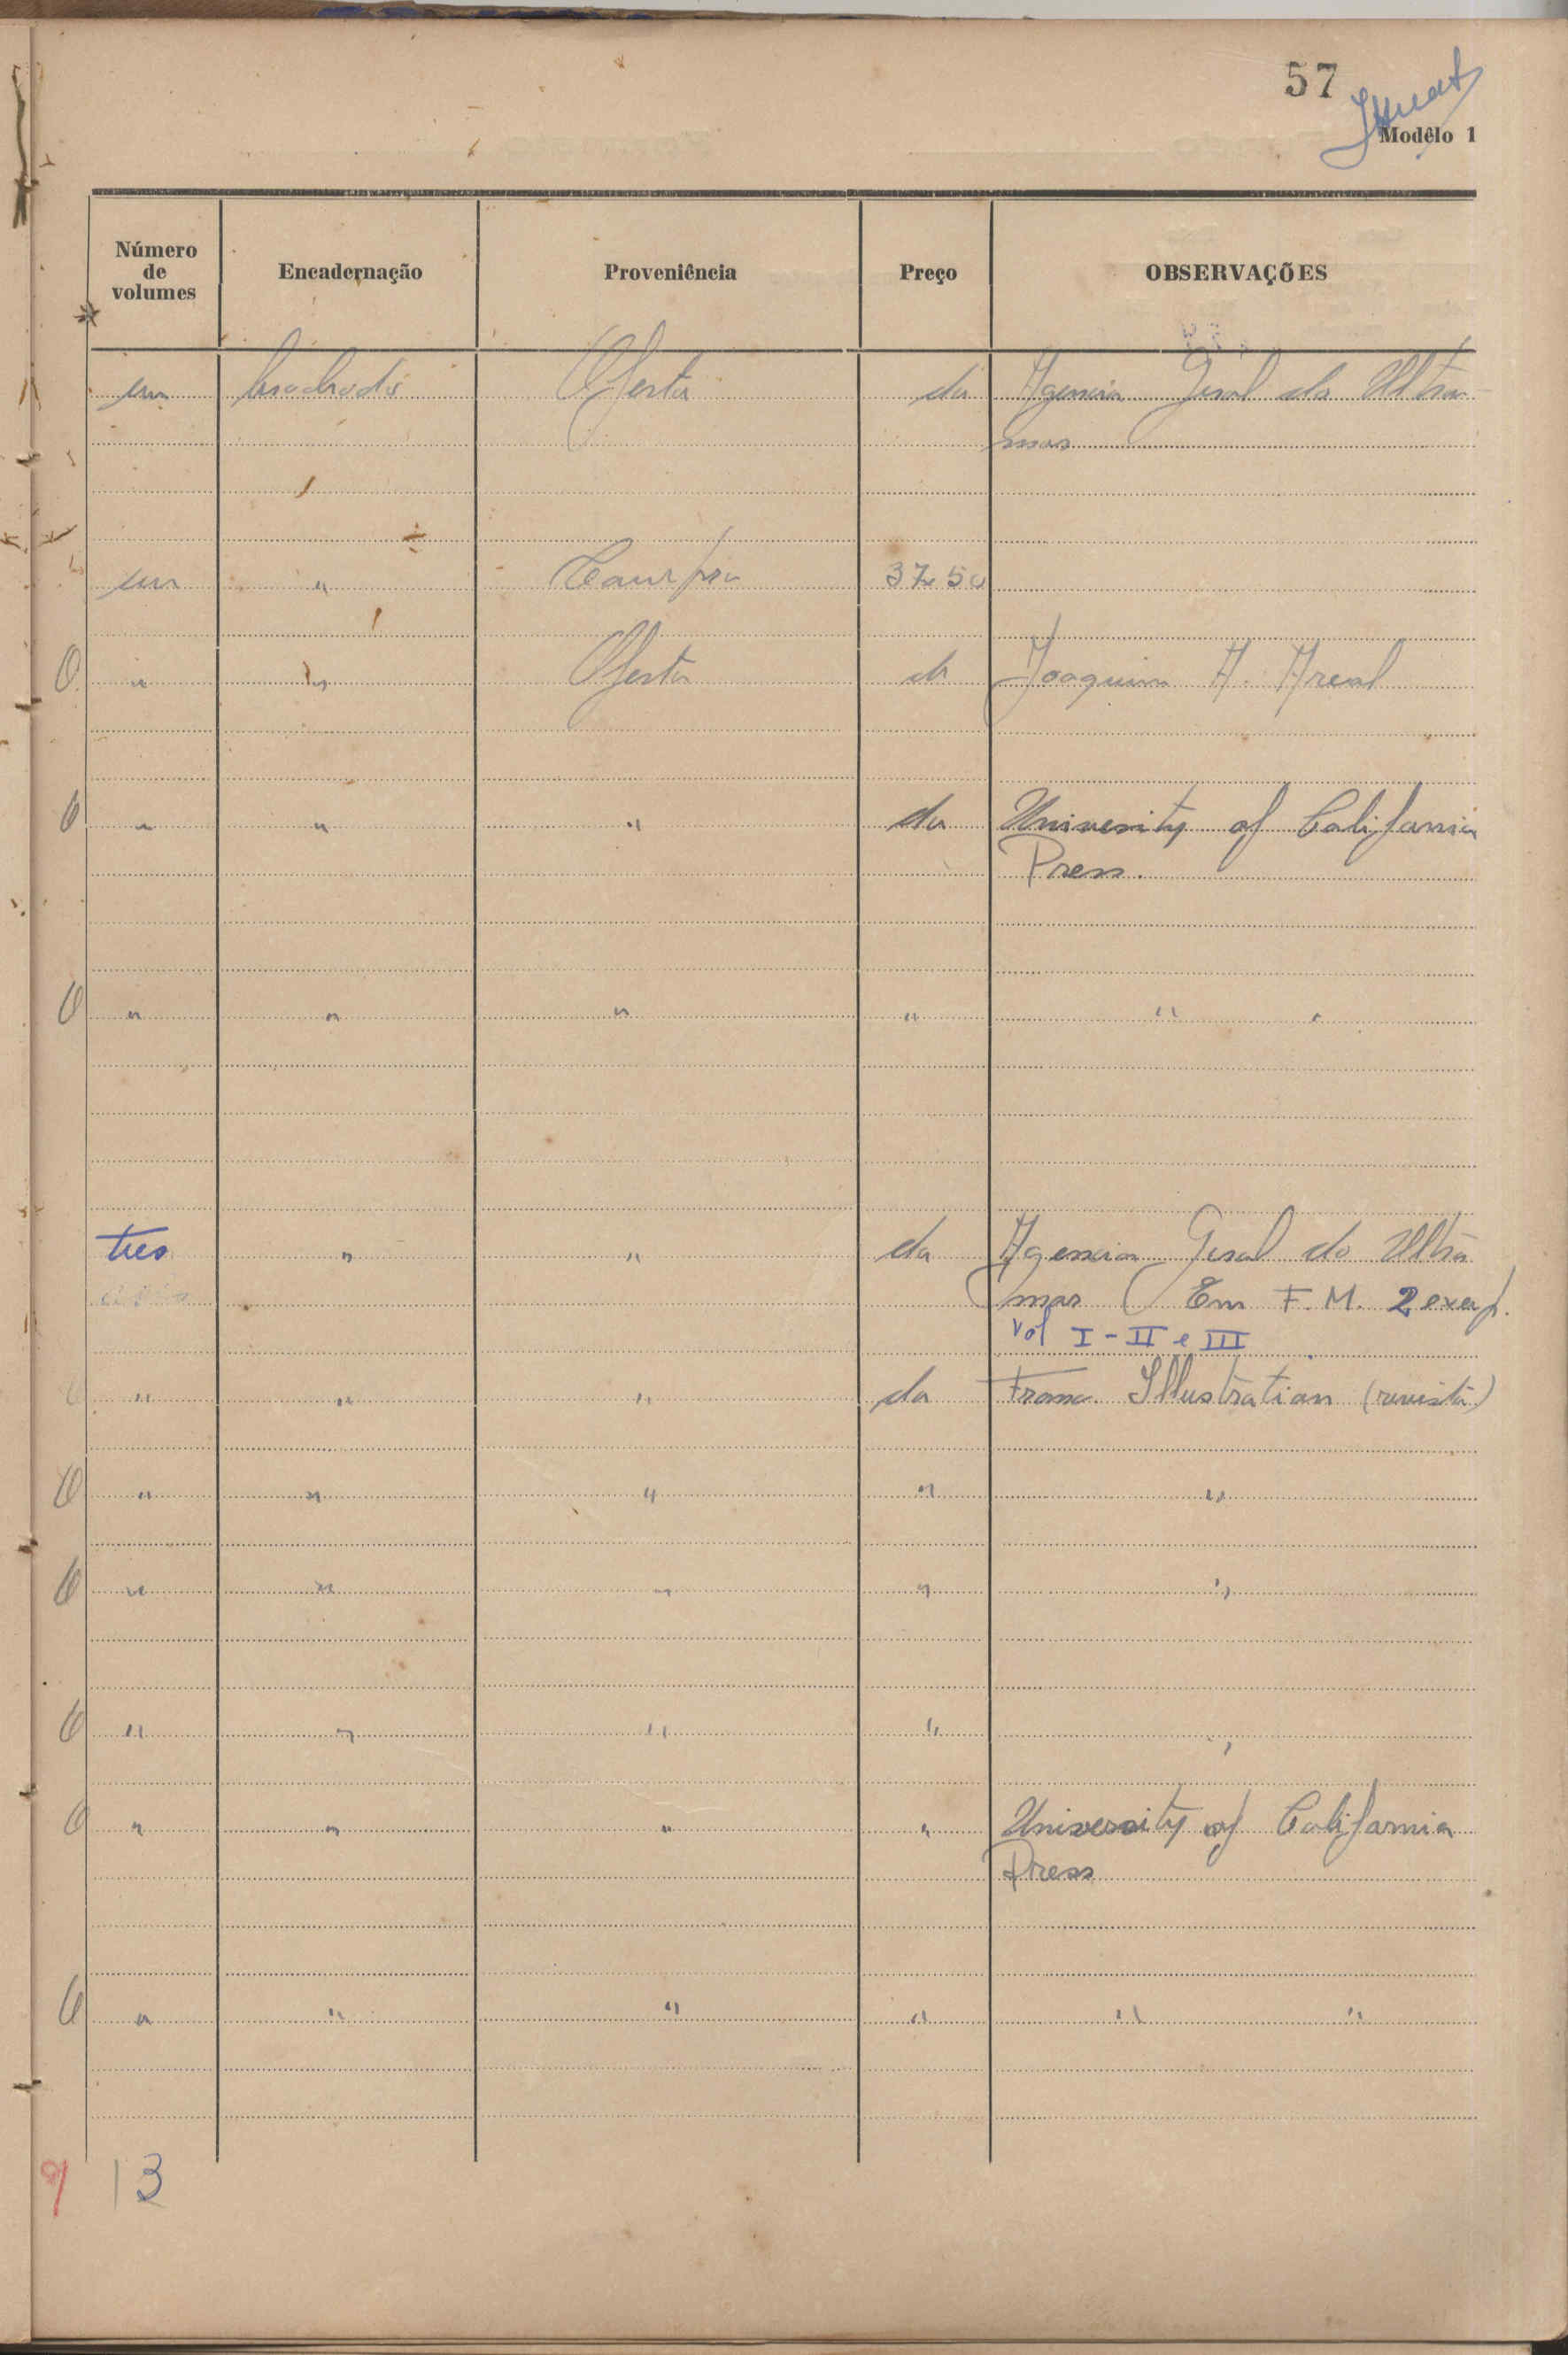 57
Modêlo 1
Número de volumes Encadernação Proveniência Preço OBSERVAÇÕES
um brochado Oferta da Agencia Geral do Ultra-
mar
um " Compra 37$50
O " " Oferta de Joaquim A. Areal
O " " " da University of California
Press.
O " " " " " "
tres " " da Agencia Geral do Ultra
mar (Em F. M. 2 exemp.
Vol I - II e III
" " " da France Illustration (revista)
O " " " " "
O " " " " "
O " " " " "
O " " " " University of California
Press
O " " " " " "
9 13